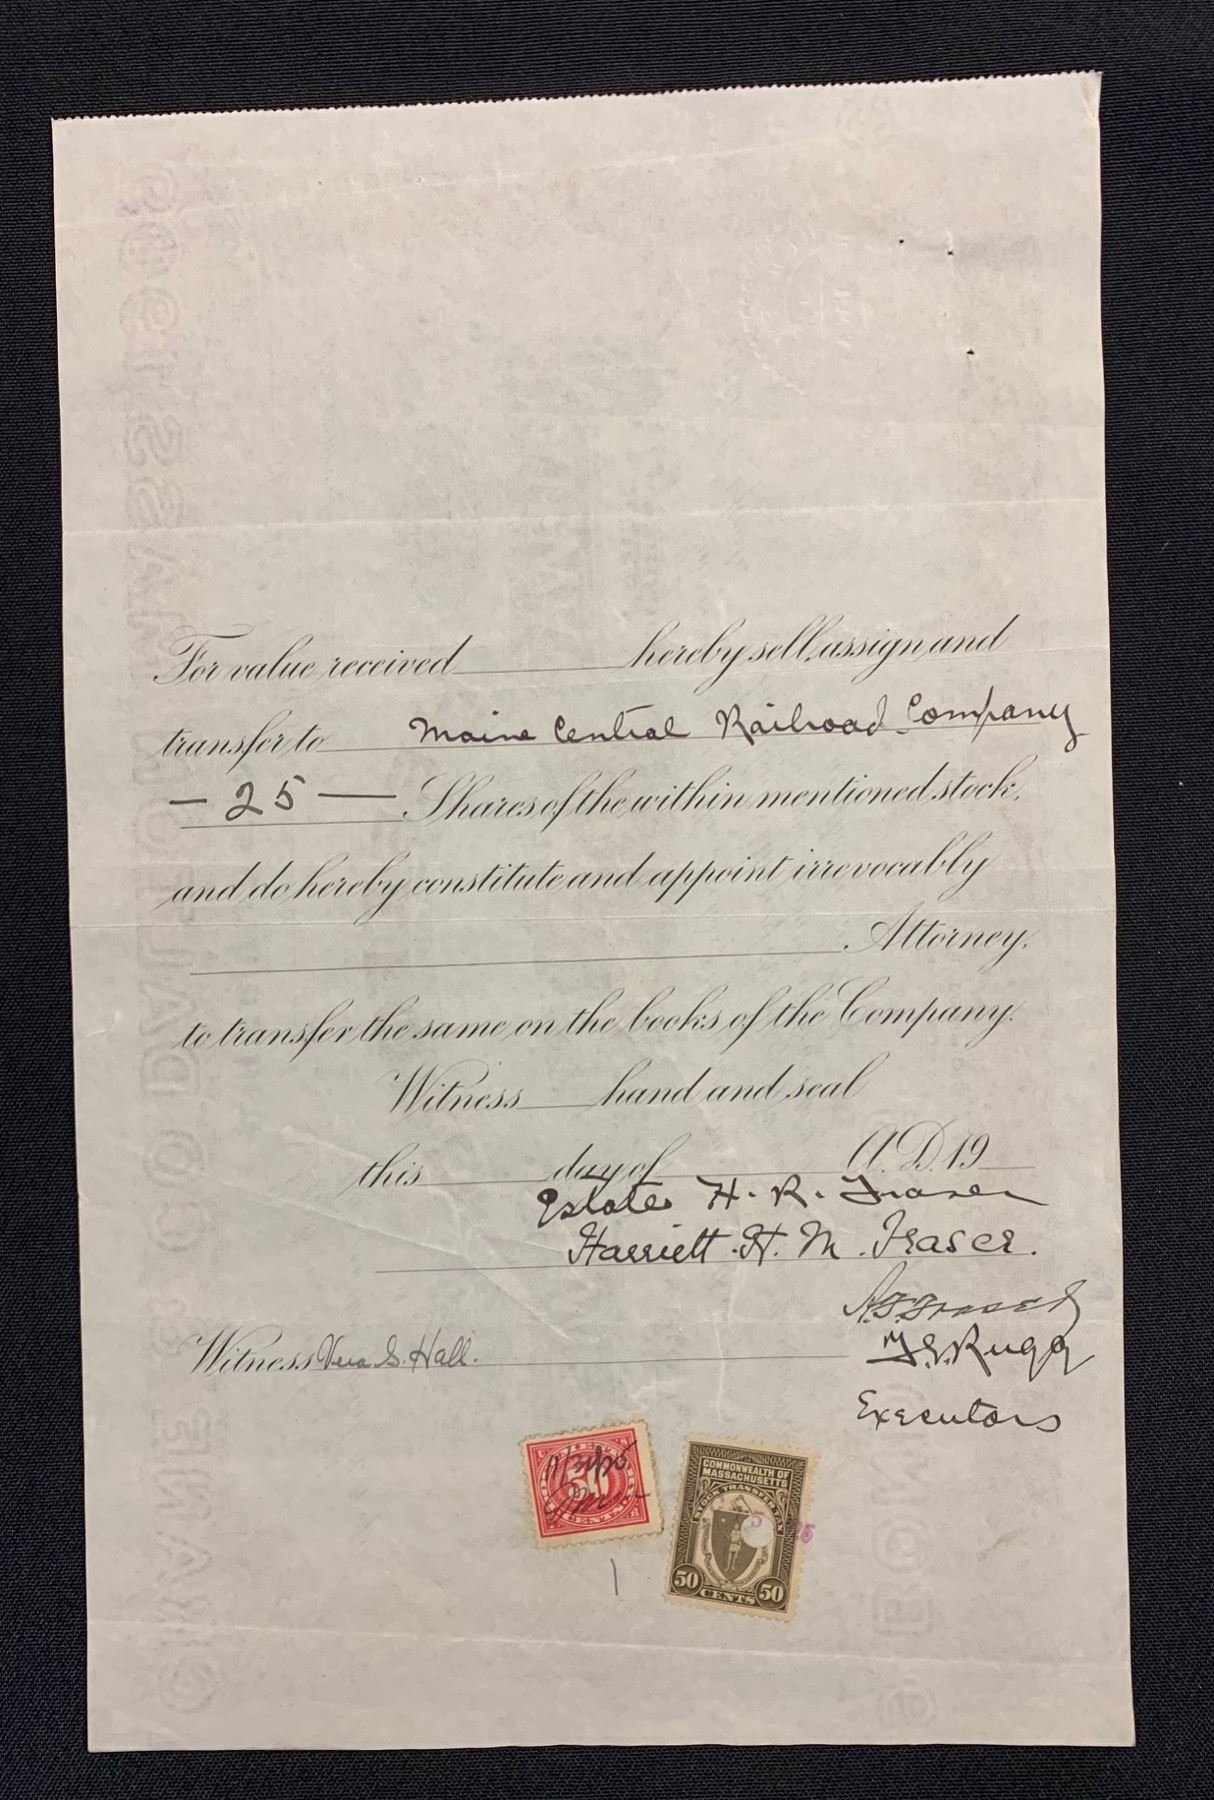 For value received hereby sell, assign and
transfer to Maine Central Railroad Company
— 25 — Shares of the within mentioned stock,
and do hereby constitute and appoint irrevocably
Attorney.
to transfer the same on the books of the Company.
Witness hand and seal
this day of A.D. 19
Estate H. R. Fraser
Harriett H. M. Fraser.
A. F. Fraser
Witness Vera S. Hall.
F. E. Rugg
Executors
50
CENTS
COMMONWEALTH OF
MASSACHUSETTS
STOCK TRANSFER TAX
50 CENTS 50